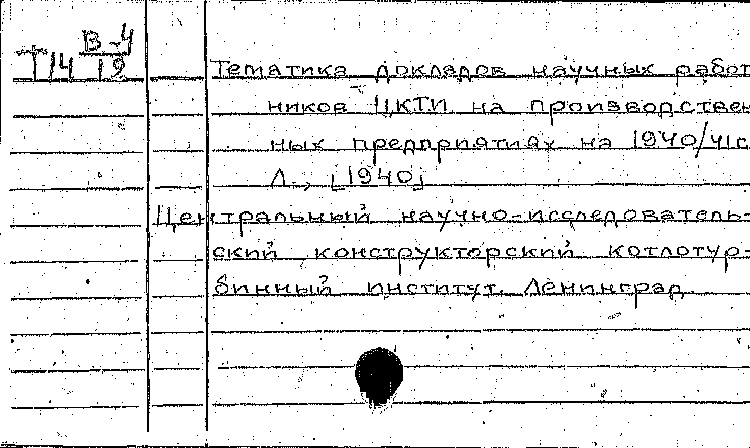 В-4
Т14 19
Тематика докладов научных работ
ников ЦКТИ на производствен
ных предприятиях на 1940/41г
Л., [1940]
Центральный научно-исследователь-
ский конструкторский котлотур-
бинный институт. Ленинград